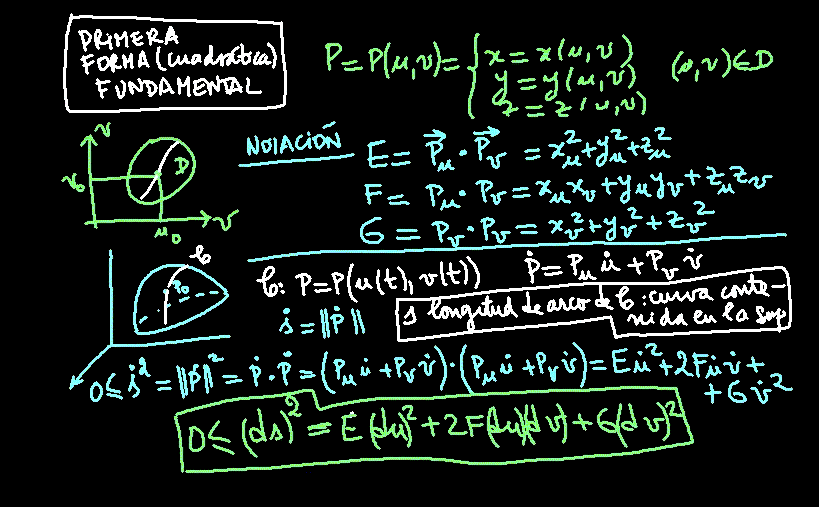 PRIMERA
FORMA (cuadrática)
FUNDAMENTAL
P = P(u,v) = { x = x(u,v)
y = y(u,v)
z = z(u,v)
(u,v) ∈ D
v
D
v₀
u₀
v
NOTACIÓN
E = P⃗ᵤ · P⃗ᵥ = xᵤ² + yᵤ² + zᵤ²
F = Pᵤ · Pᵥ = xᵤxᵥ + yᵤyᵥ + zᵤzᵥ
G = Pᵥ · Pᵥ = xᵥ² + yᵥ² + zᵥ²
C
P₀
C: P = P(u(t), v(t)) Ṗ = Pᵤ u̇ + Pᵥ v̇
ṡ = ‖Ṗ‖
s longitud de arco de C: curva conte-
nida en la sup
0 ≤ ṡ² = ‖Ṗ‖² = Ṗ · Ṗ = (Pᵤ u̇ + Pᵥ v̇) · (Pᵤ u̇ + Pᵥ v̇) = E u̇² + 2F u̇ v̇ +
+ G v̇²
0 ≤ (ds)² = E (du)² + 2F(du)(dv) + G(dv)²